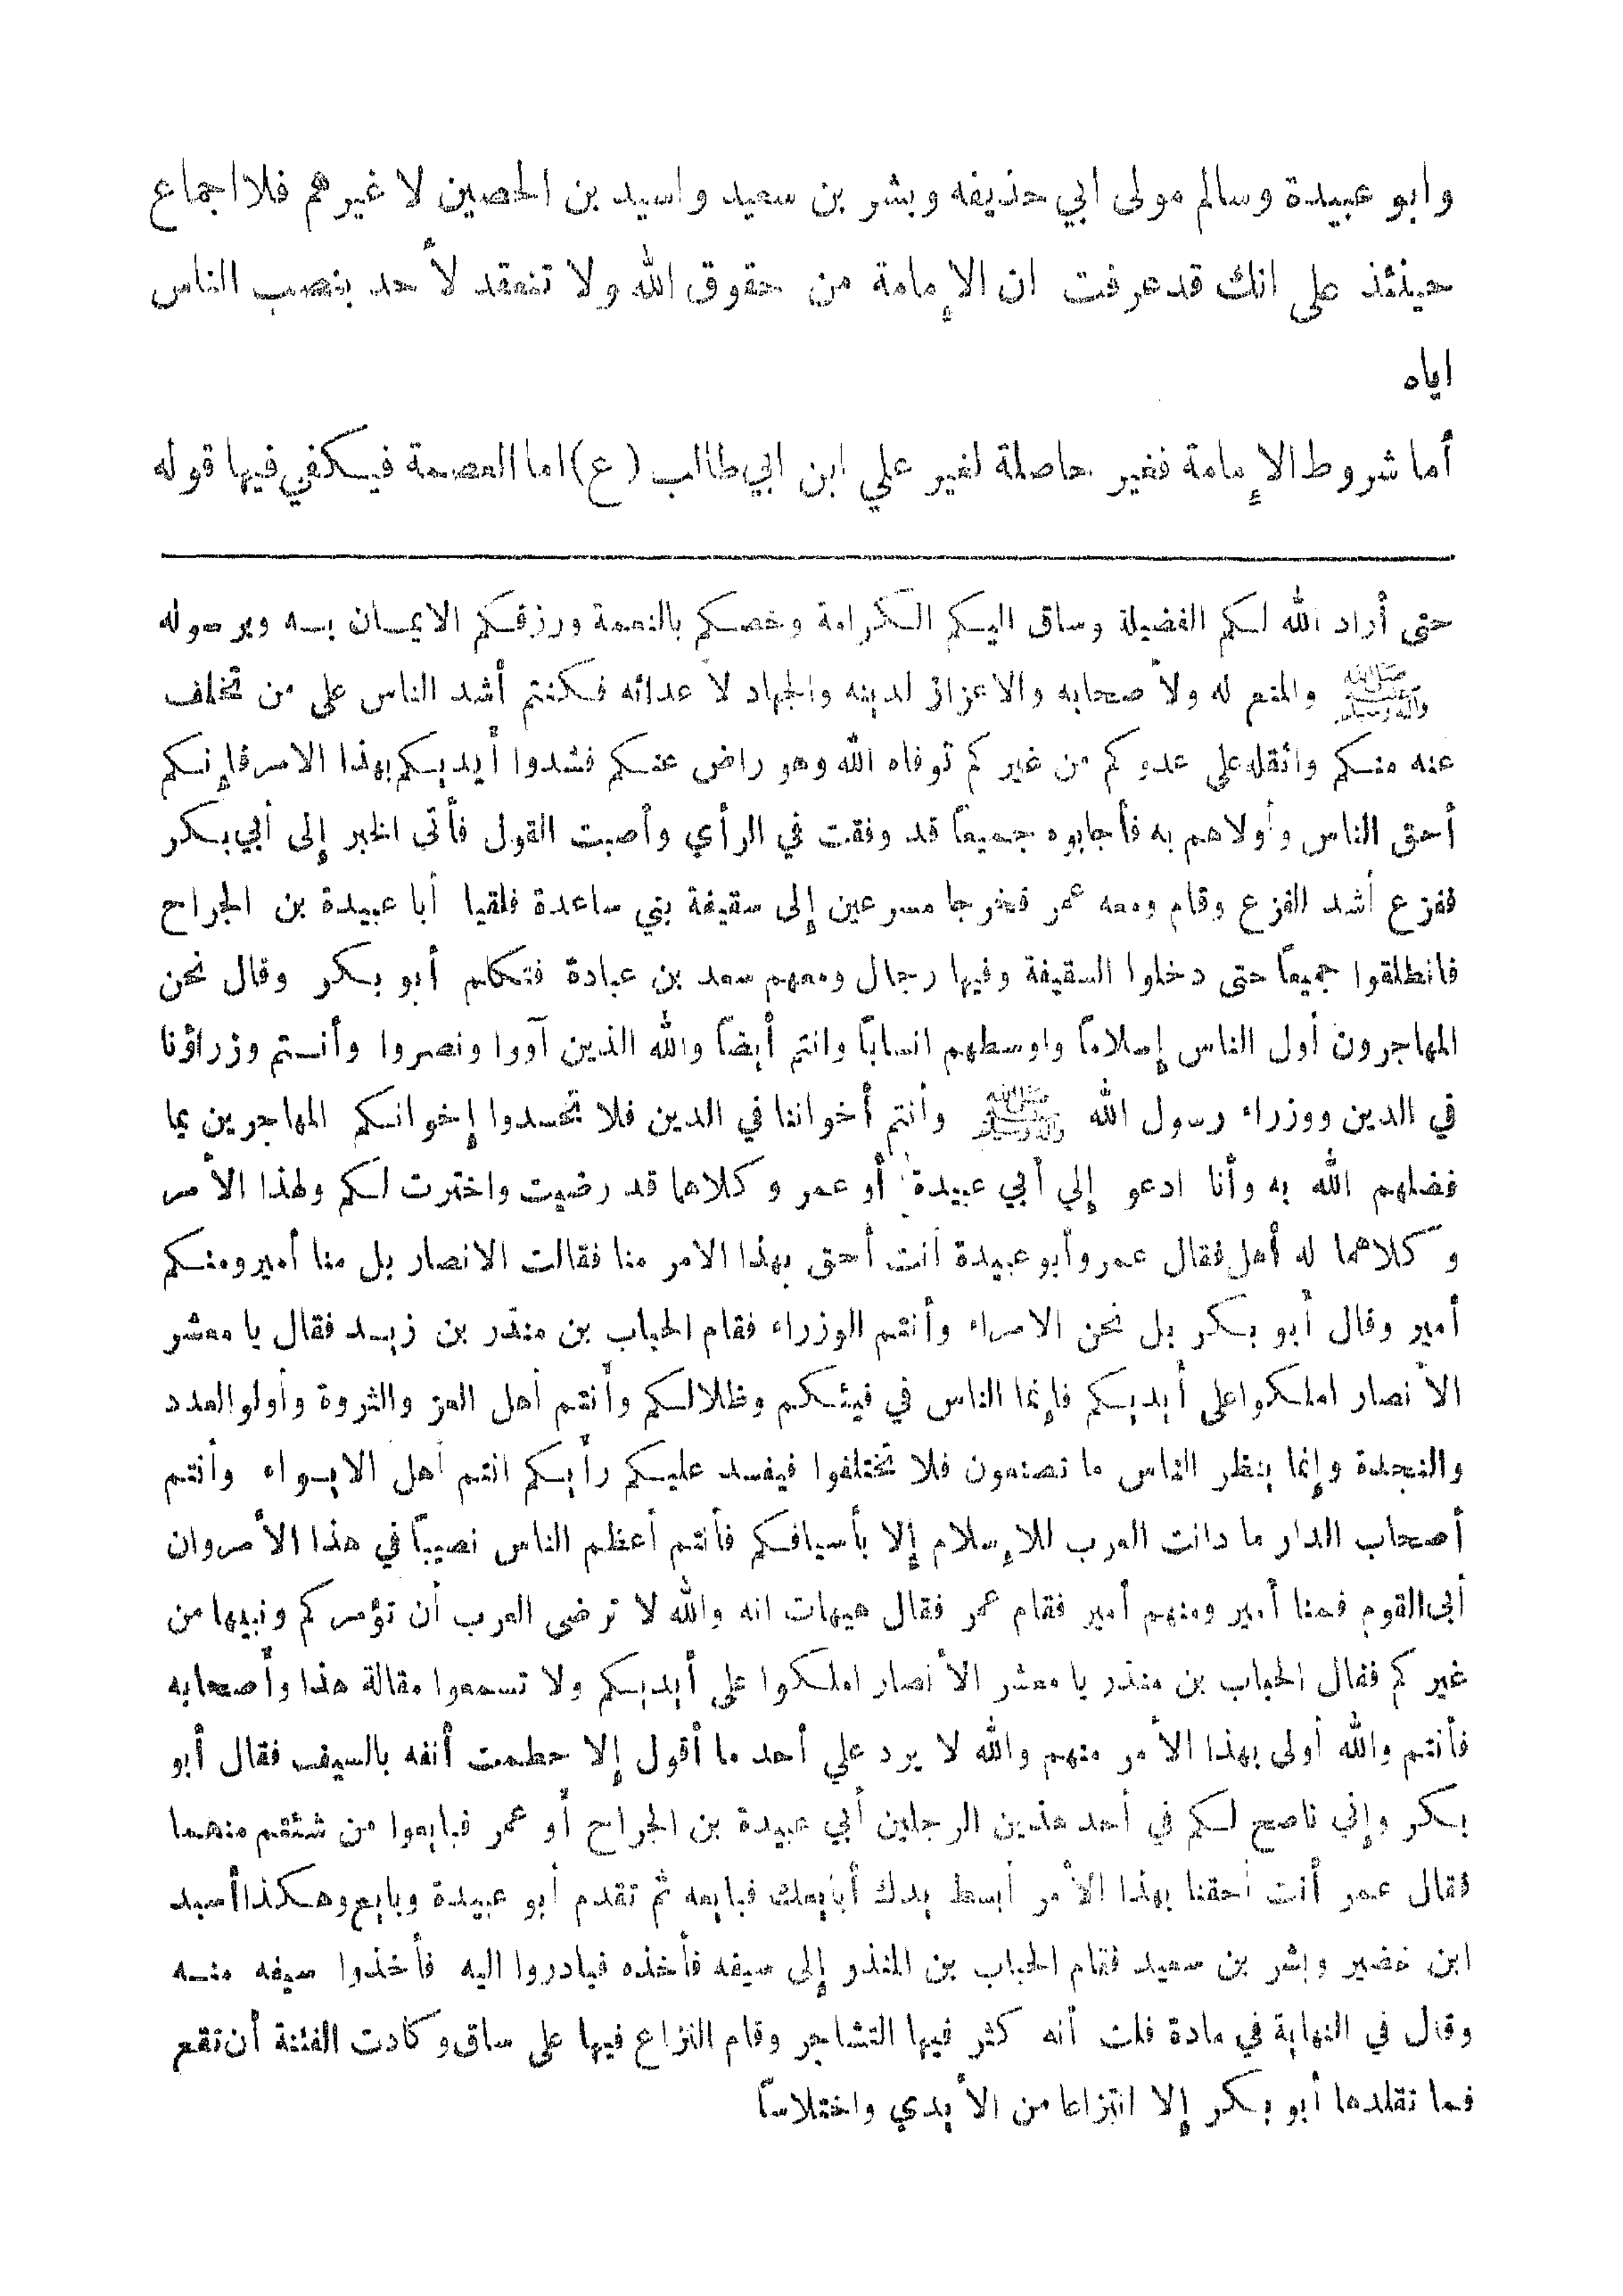 وابو عبيدة وسالم مولى ابي حذيفه وبشر بن سعيد واسيد بن الحصين لا غيرهم فلا اجماع
حينئذ على انك قد عرفت ان الإمامة من حقوق الله ولا تنعقد لأحد بنصب الناس
اياه
أما شروط الإمامة فغير حاصلة لغير علي ابن ابي طالب (ع) اما العصمة فيكفي فيها قوله
حتى أراد الله لكم الفضيلة وساق اليكم الكرامة وخصكم بالنعمة ورزقكم الايمان به وبرسوله
صلى الله عليه وآله وسلم والمنع له ولأصحابه والاعزاز لدينه والجهاد لأعدائه فكنتم أشد الناس على من تخلف
عنه منكم واثقله على عدوكم من غيركم توفاه الله وهو راض عنكم فشدوا أيديكم بهذا الامر فإنكم
أحق الناس وأولاهم به فأجابوه جميعاً قد وفقت في الرأي وأصبت القول فأتى الخبر إلى أبي بكر
ففزع أشد الفزع وقام ومعه عمر فخرجا مسرعين إلى سقيفة بني ساعدة فلقيا أبا عبيدة بن الجراح
فانطلقوا جميعاً حتى دخلوا السقيفة وفيها رجال ومعهم سعد بن عبادة فتكلم أبو بكر وقال نحن
المهاجرون أول الناس إسلاماً واوسطهم انساباً وانتم أيضاً والله الذين آووا ونصروا وأنتم وزراؤنا
في الدين ووزراء رسول الله صلى الله عليه وآله وسلم وانتم أخواننا في الدين فلا تحسدوا إخوانكم المهاجرين بما
فضلهم الله به وأنا ادعو إلي أبي عبيدة أو عمر وكلاهما قد رضيت واخترت لكم ولهذا الأمر
وكلاهما له أهل فقال عمر وأبو عبيدة أنت أحق بهذا الامر منا فقالت الانصار بل منا أمير ومنكم
أمير وقال أبو بكر بل نحن الامراء وأنتم الوزراء فقام الحباب بن منذر بن زيد فقال يا معشر
الأنصار املكوا على أيديكم فإنما الناس في فيئكم وظلالكم وأنتم أهل العز والثروة وأولو العدد
والنجدة وإنما ينظر الناس ما تصنعون فلا تختلفوا فيفسد عليكم رأيكم انتم أهل الايواء وأنتم
أصحاب الدار ما دانت العرب للإسلام إلا بأسيافكم فأنتم أعظم الناس نصيباً في هذا الأمر وان
أبى القوم فمنا أمير ومنهم أمير فقام عمر فقال هيهات انه والله لا ترضى العرب أن تؤمركم ونبيها من
غيركم فقال الحباب بن منذر يا معشر الأنصار املكوا على أيديكم ولا تسمعوا مقالة هذا وأصحابه
فأنتم والله أولى بهذا الأمر منهم والله لا يرد علي أحد ما أقول إلا حطمت أنفه بالسيف فقال أبو
بكر وإني ناصح لكم في أحد هذين الرجلين أبي عبيدة بن الجراح أو عمر فبايعوا من شئتم منهما
فقال عمر أنت أحقنا بهذا الأمر أبسط يدك أبايعك فبايعه ثم تقدم أبو عبيدة وبايع وهكذا أسيد
ابن خضير وبشر بن سعيد فقام الحباب بن المنذر إلى سيفه فأخذه فبادروا اليه فأخذوا سيفه منه
وقال في النهاية في مادة فلت أنه كثر فيها التشاجر وقام النزاع فيها على ساق وكادت الفتنة أن تقع
فما تقلدها أبو بكر إلا انتزاعا من الأيدي واختلاساً